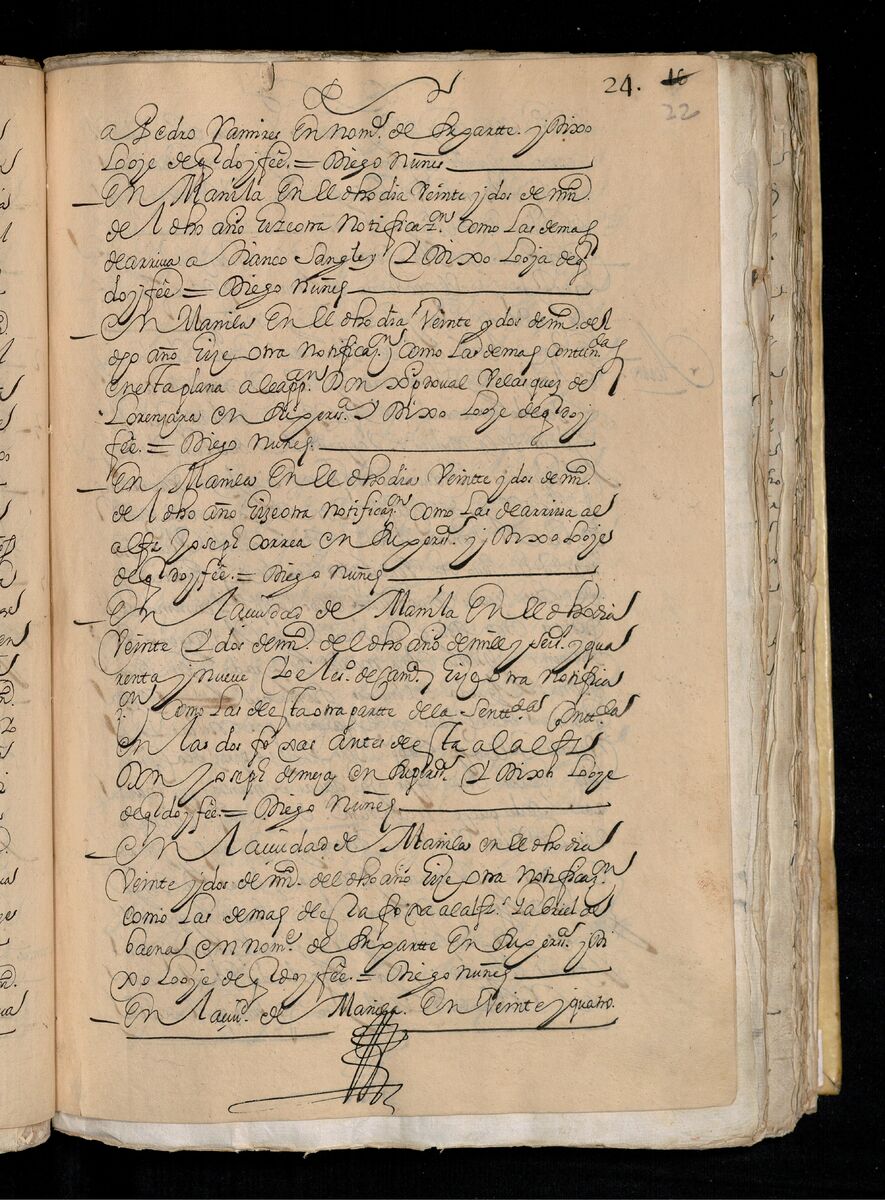 24. 16
22
a Pedro Ramires En nomᵉ. de su partte. y Dixo
Lo oje de q̃ doy fèe. = Diego Nuñes
En Manila En ll dho dia Veinte y dos de mrᵒ.
de l dho año hize otra Notificazⁿ. como las demas
de arriva a Bianco Sangley Y Dixo lo oja de q̃
doy fèe = Diego Nuñes
En Manila En ll dho dia Veinte y dos de mrᵒ. del
dho año hize otra Notificazⁿ como las demas contenᵈᵃˢ
en esta plana a l cappᵃⁿ Don Xpᵒdoual Velasquez de
Lorenzana en su persᵃ. Y Dixo lo oje de q̃ doy
fèe. = Diego Nuñes.
En Manila En ll dho dia Veintte y dos de mrᵒ.
de l dho año hize otra Notificazⁿ. como las de arriva al
alfz Joseph Correa en su persᵃ. y Dixo lo oje
de q̃ doy fèe. = Diego Nuñes
En la ciudad de Manila En ll dho dia
Veinte Y dos de mrᵒ. de l dho año de mill y seisᵒ. y qua
renta y nueve Yo el esᵒ. de camᵃ. hize otra Notifica
zⁿ como las de esta otra partte de la Senttᵃ Conttᵈᵃ
en las dos foxas antes de esta a l alfz
Don Joseph de mejᵃ en su persᵃ. Y Dixo lo oje
de q̃ doy fèe. = Diego Nuñes
En la ciudad de Manila en ll dho dia
Veinte y dos de mrᵒ. del dho año hize otra Notificazⁿ.
como las demas de esta foxa a l alfzˢ. Gabriel de
baena en nomᵉ. de su partte En su persᵃ. y Di
xo lo oje de q̃ doy fèe. = Diego Nuñes
En la ciuᵈ. de Manila. En Veinte y quatro.